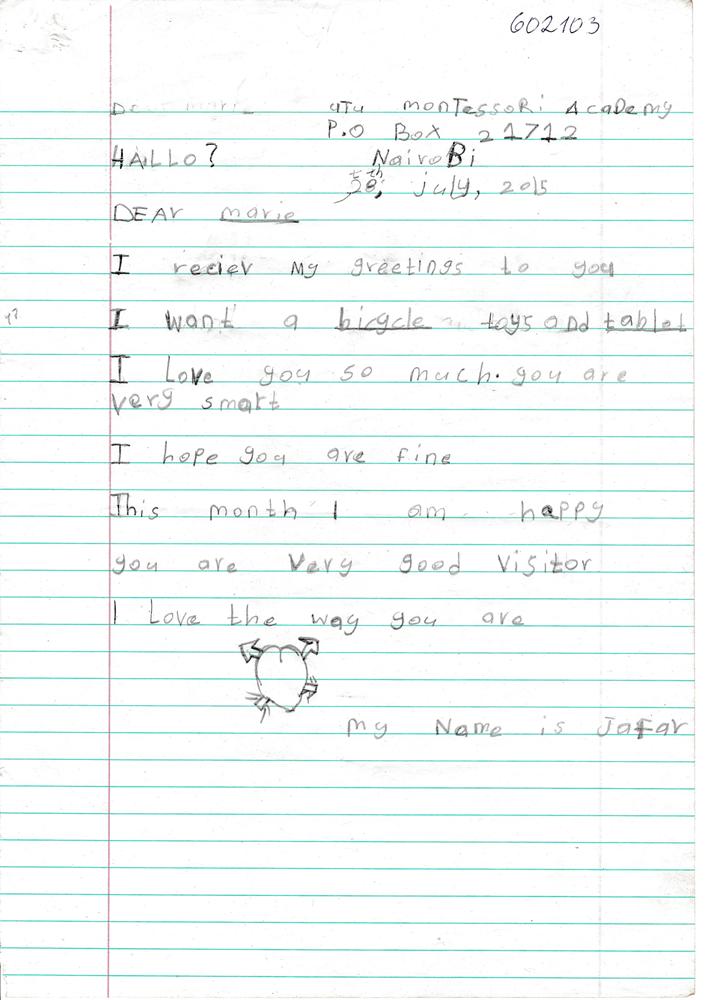 602103
UTU monTessoRi AcaDemy
P.O Box 21712
HALLO? NairoBi
28th, july, 2015
DEAr marie
I reciev My greetings to you
I want a bicycle toys and tablet
I Love you so much. you are
very smart
I hope you are fine
This month I am happy
you are Very good Visitor
I Love the way you are
My Name is JaFar